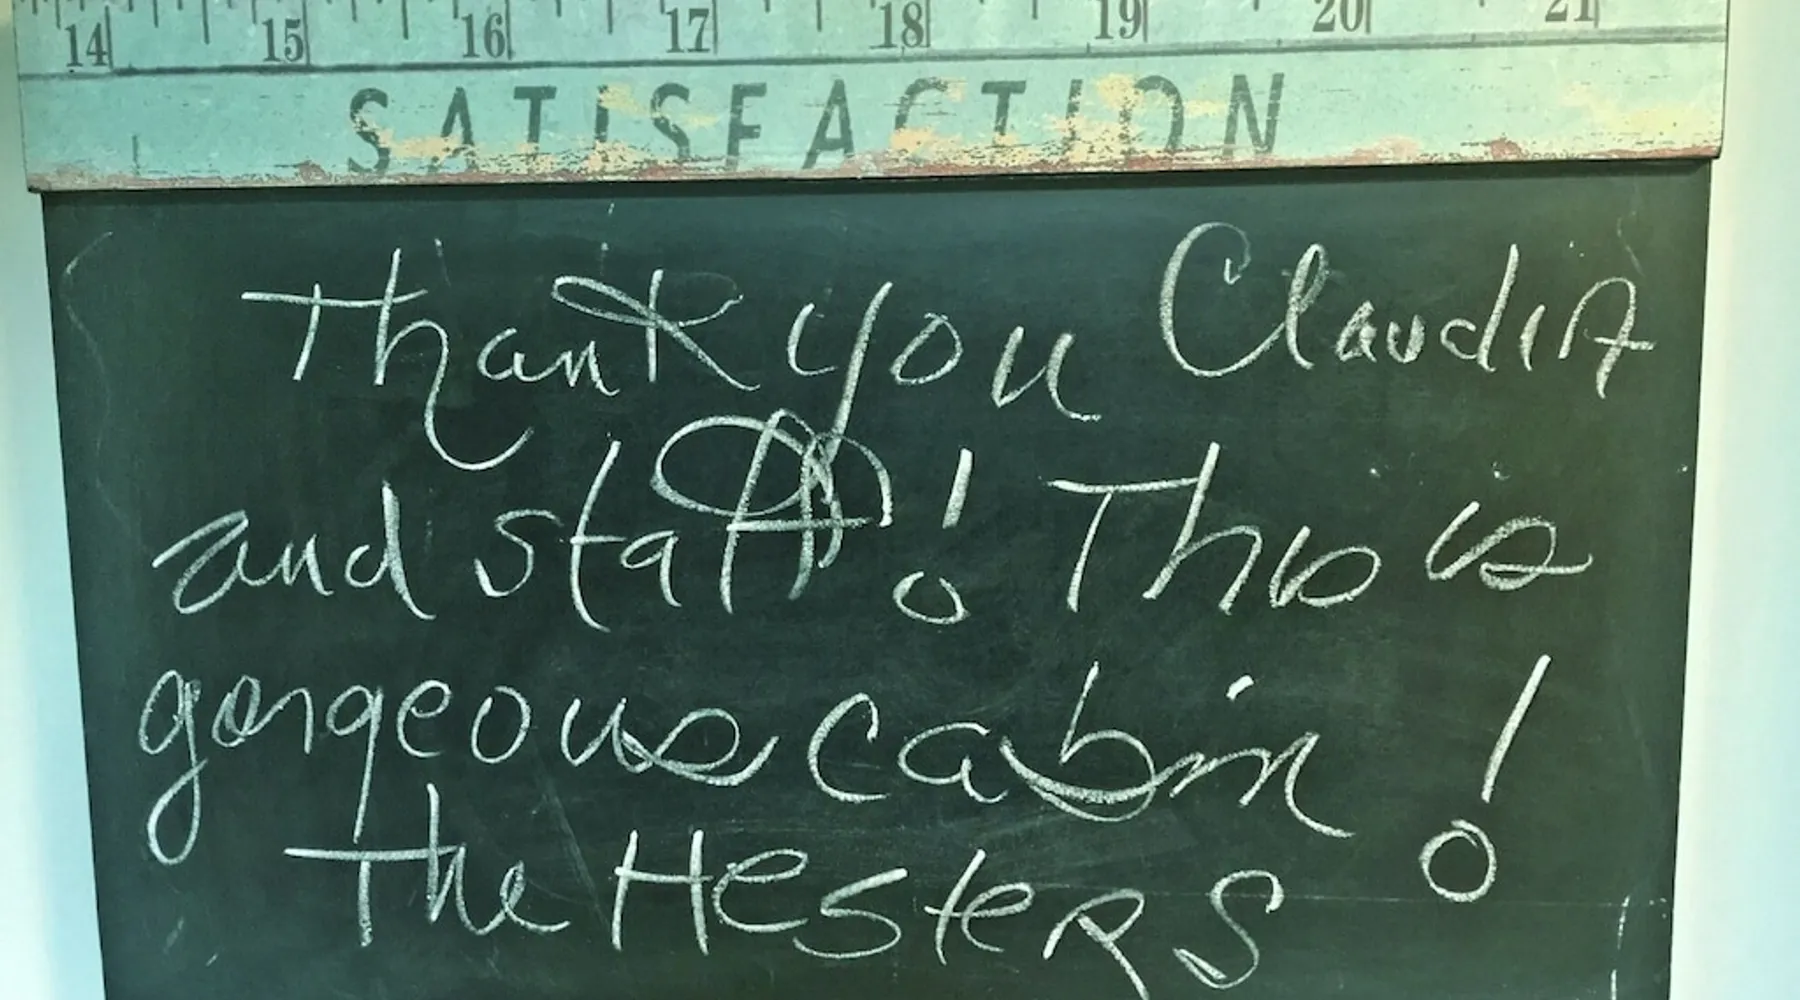 14 15 16 17 18 19 20 21
SATISFACTION
Thank you Claudia
and staff! This is
gorgeous cabin!
The Hesters